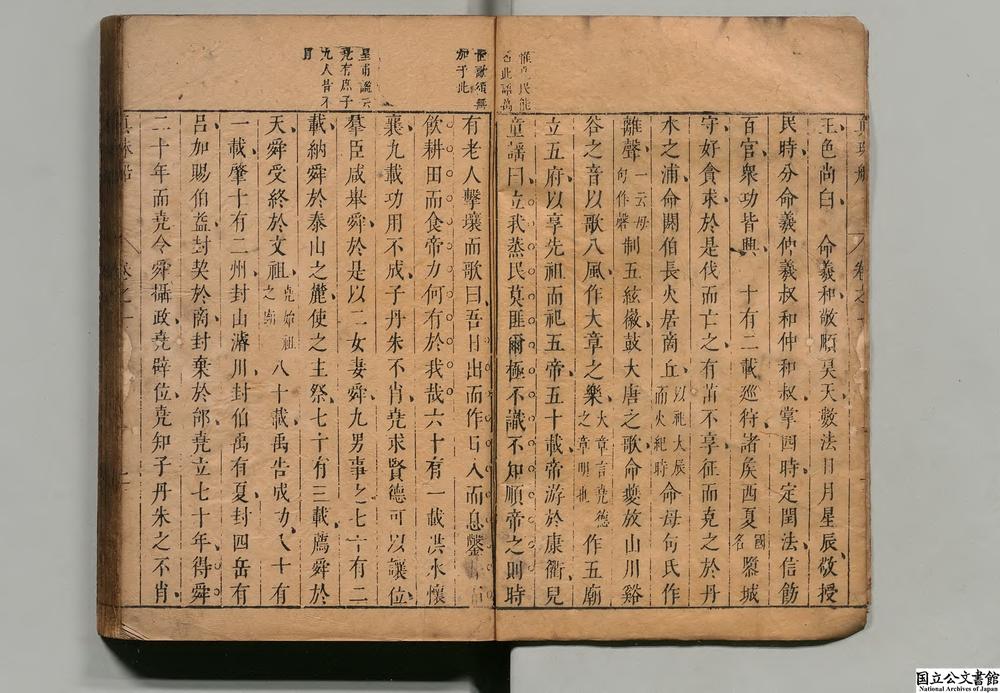 惟堯民能
此謡
加于此
皇甫謐云
堯有庶子
九人皆不
王色尚白　命羲和敬順昊天數法日月星辰敬授
民時分命羲仲羲叔和仲和叔掌四時定閏法信飭
百官衆功皆興　十有二載廵狩諸矦西夏國名隳城
守好貪求於是伐而亡之有苗不享征而克之於丹
水之浦命閼伯長火居商丘以祀大辰而火紀時命母句氏作
離聲一云母句作磬制五絃徽鼓大唐之歌命夔放山川谿
谷之音以歌八風作大章之樂大章言堯德之章明也作五廟
立五府以享先祖而祀五帝五十載帝游於康衢兒
童謡曰立我蒸民莫匪爾極不識不知順帝之則時
有老人擊壤而歌曰吾日出而作日入而息鑿
飲耕田而食帝力何有於我哉六十有一載洪水懷
襄九載功用不成子丹朱不肖堯求賢德可以讓位
羣臣咸舉舜於是以二女妻舜九男事之七十有二
載納舜於泰山之麓使之主祭七十有三載薦舜於
天舜受終於文祖堯始祖之廟八十載禹告成功八十有
一載肇十有二州封山濬川封伯禹有夏封四岳有
呂加賜伯益封契於商封棄於邰堯立七十年得舜
二十年而堯令舜攝政堯辟位堯知子丹朱之不肖
卷之一
国立公文書館
National Archives of Japan